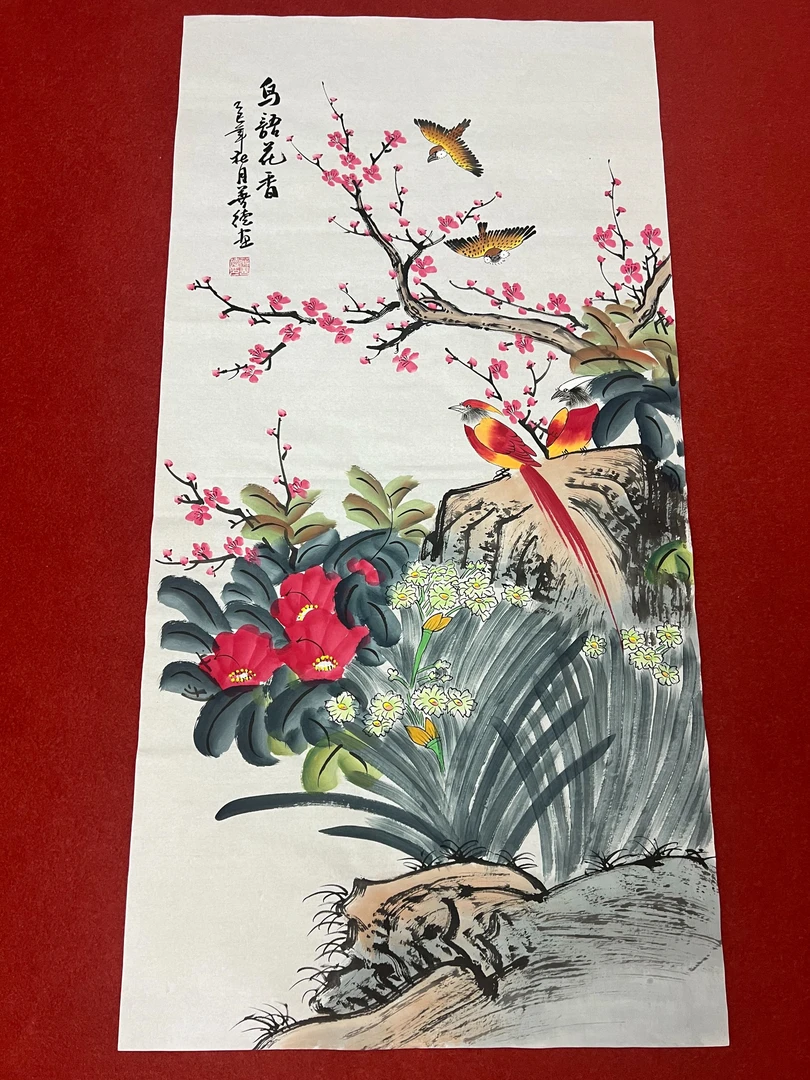 鸟語花香
乙巳年秋月善德画